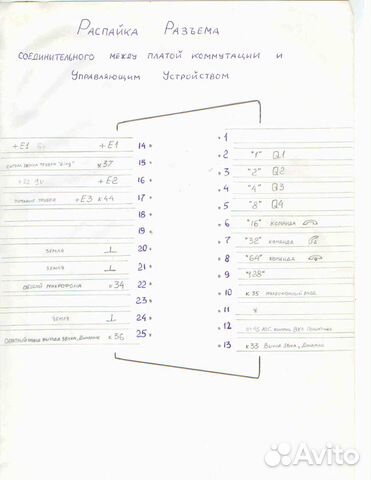 Распайка Разъема
соединительного между платой коммутации и
Управляющим Устройством
1
+E1 +E1 14
2 "1" Q1
15 к37
3 "2" Q2
+E2 16
4 "4" Q3
питание трубки +E3 к44 17
5 "8" Q4
18
6 "16" команда
19
7 "32" команда
земля ⊥ 20
8 "64" команда
земля ⊥ 21
9 "128"
общий микрофона к34 22
10 к35 микрофонный вход
23
11
земля ⊥ 24
12
выход звука, динамик к36 25
13 к33 Выход звука, динамик
Avito